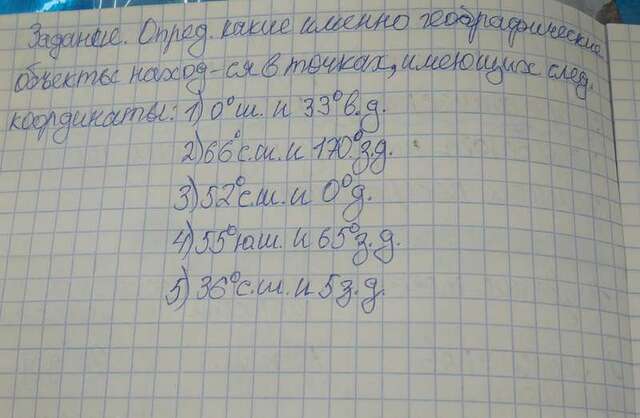 Задание. Опред. какие именно географические
объекты наход-ся в точках, имеющих след.
координаты: 1) 0°ш. и 33°в.д.
2) 66°с.ш. и 170°з.д.
3) 52°с.ш. и 0°д.
4) 55°ю.ш. и 65°з.д.
5) 36°с.ш. и 5з.д.